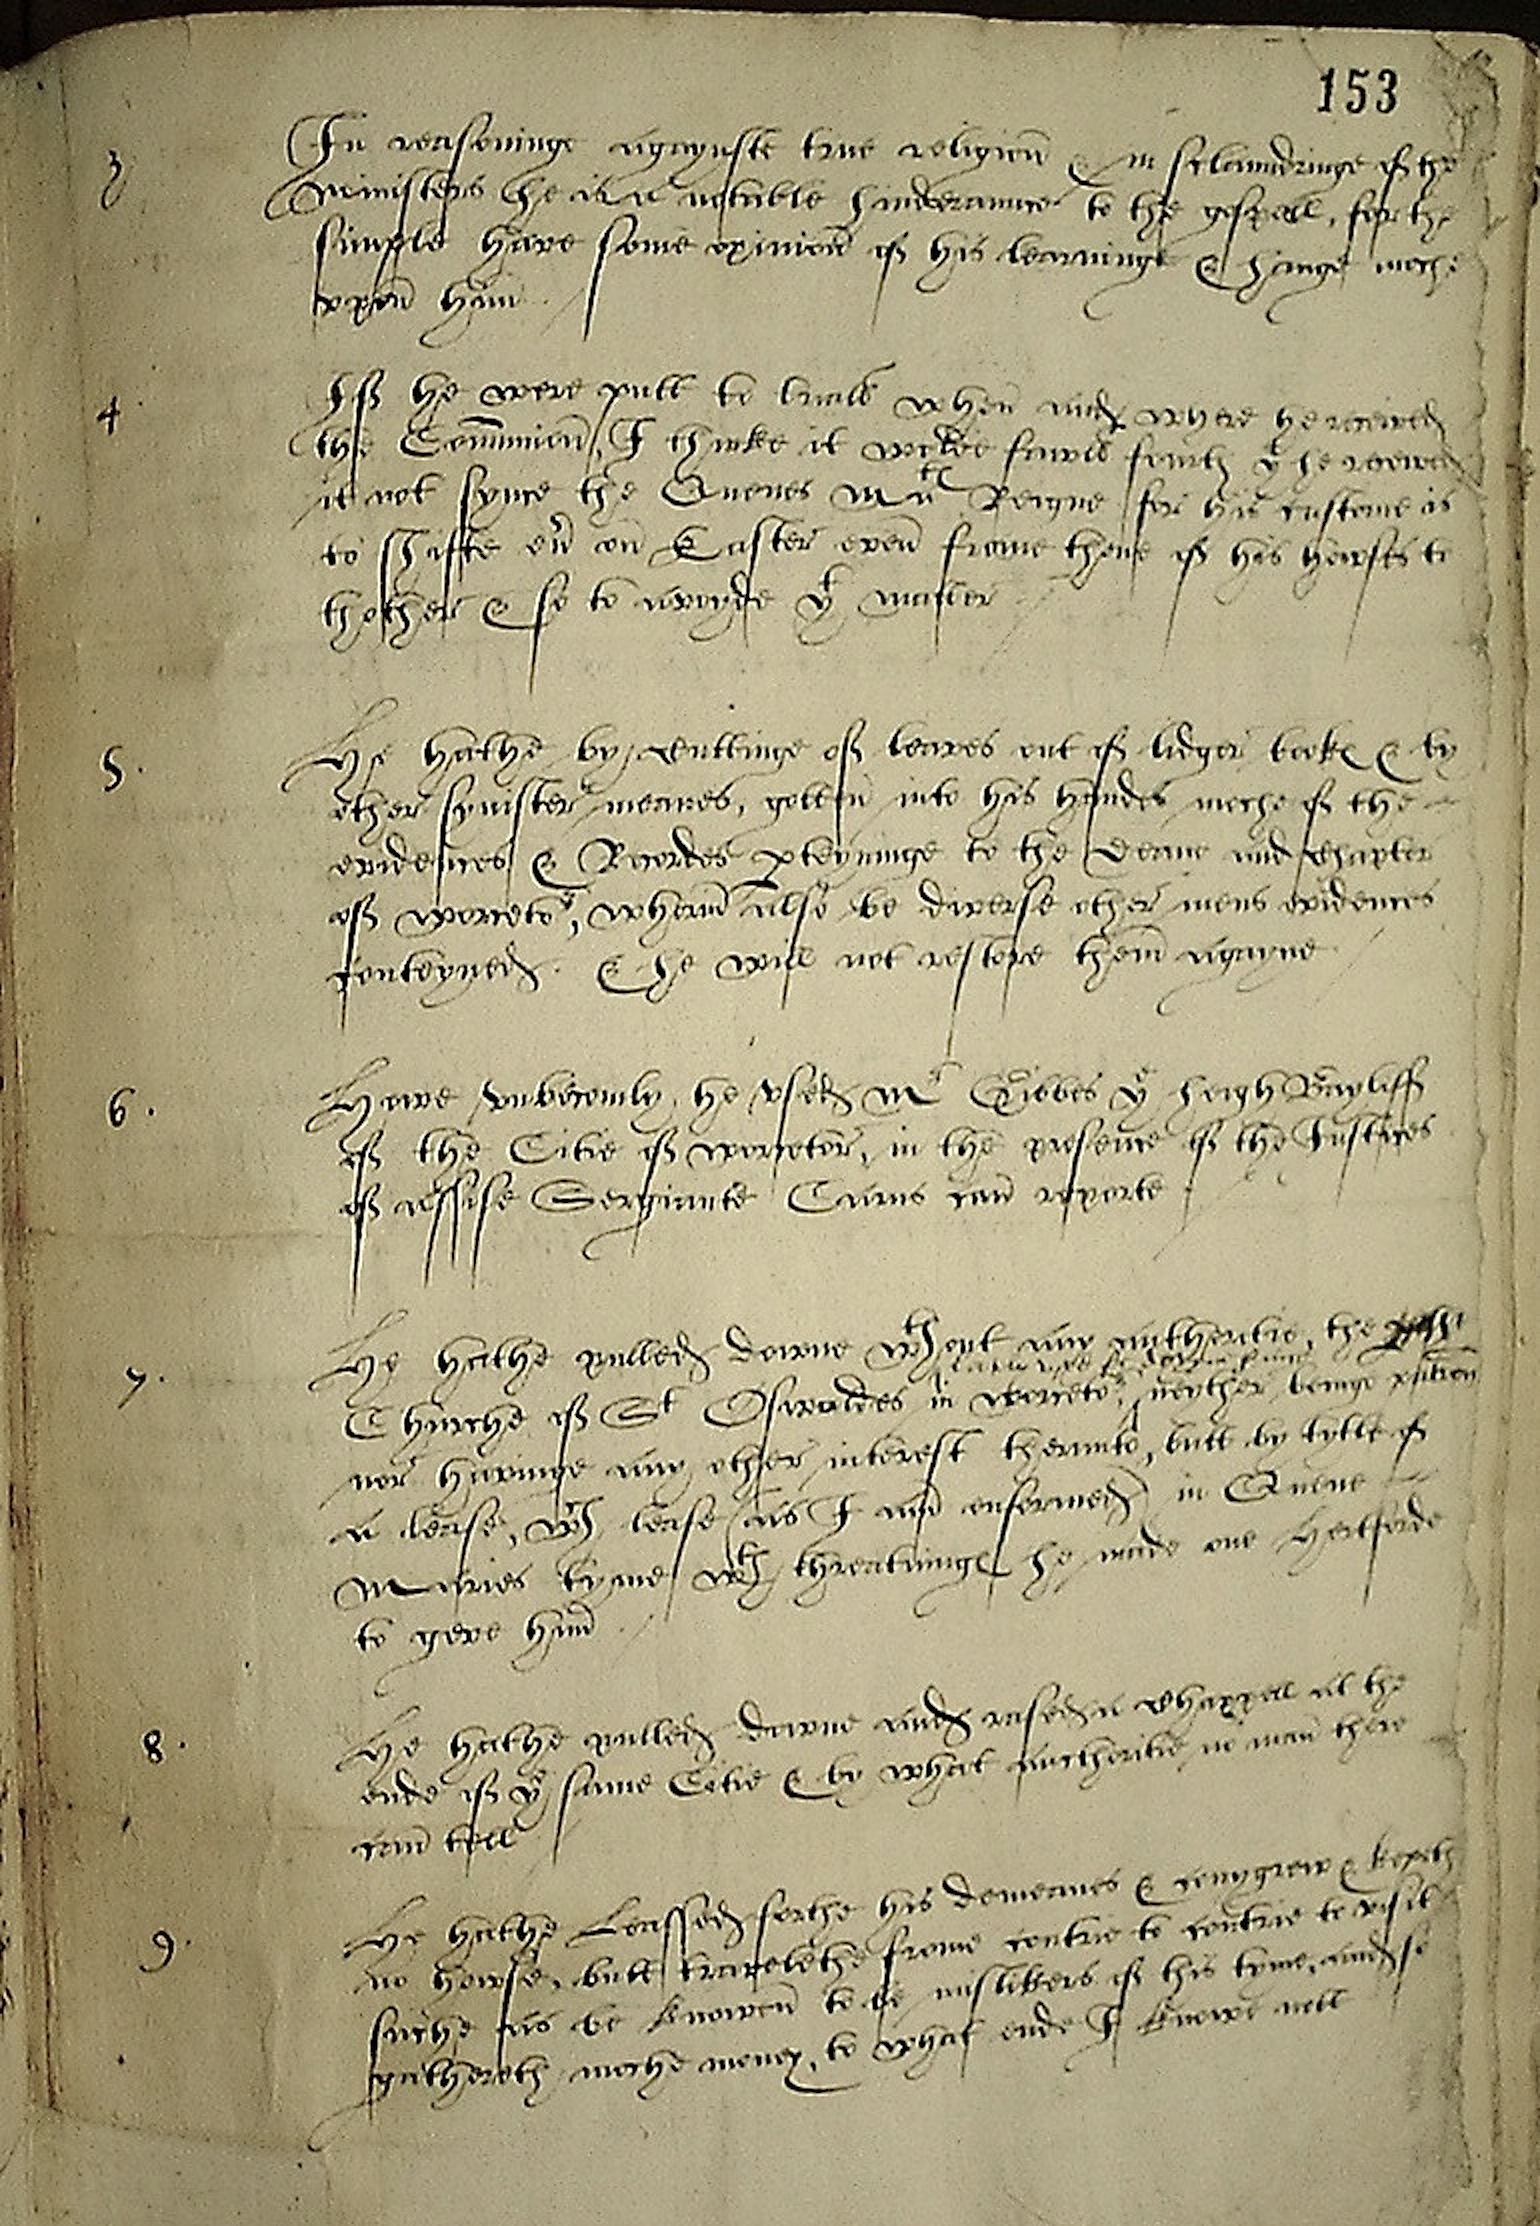 153
3 In reasoninge agaynste true religion & in sclaundringe of the
ministers he is a notable hinderaunce to the gospell, for the
simple have some opinion of his learninge & hange moche
vpon him.
4 If he were putt to when and where he received
the Communion, I thinke it wolde fawle fourth yt he receved
it not synce the Quenes Matis Reigne for his custome is
to shifte on Easter even frome thone of his howses to
thother & so to avoyde yt matter
5. He hathe by cuttinge of leaves out of lidger bookes & by
other synister meanes, gotten into his handes moche of the
evidences & Recordes pteyninge to the Deane and Chapter
of worceter, wherin also be diverse other mens evidences
conteyned. & he will not restore them agayne
6. Howe vnbecomly he vsed Mr Gibbes ye heigh Bayliff
of the Citie of worceter, in the presence of the Justices
of assise Sergiante Carus can reporte
7. He hathe pulled downe wthout any authoritie, the
Churche of St Oswaldes in worceter, neyther beinge patron
nor havinge any other interest therunto, butt by tytle of
a lease, wch lease (as I am enformed) in Quene
Maries tyme wth threatninges he made one Hertforde
to geve him.
8. He hathe pulled downe and rased a Chappell at the
ende of ye same Citie & by what authoritie no man there
can tell
9. He hathe Leassed forthe his demeanes & conygrew & kepeth
no howse, butt travelethe frome contrie to contrie to visit
suche as be knowen to be mislikers of this tyme, and so
gathereth moche money, to what ende I knowe nott